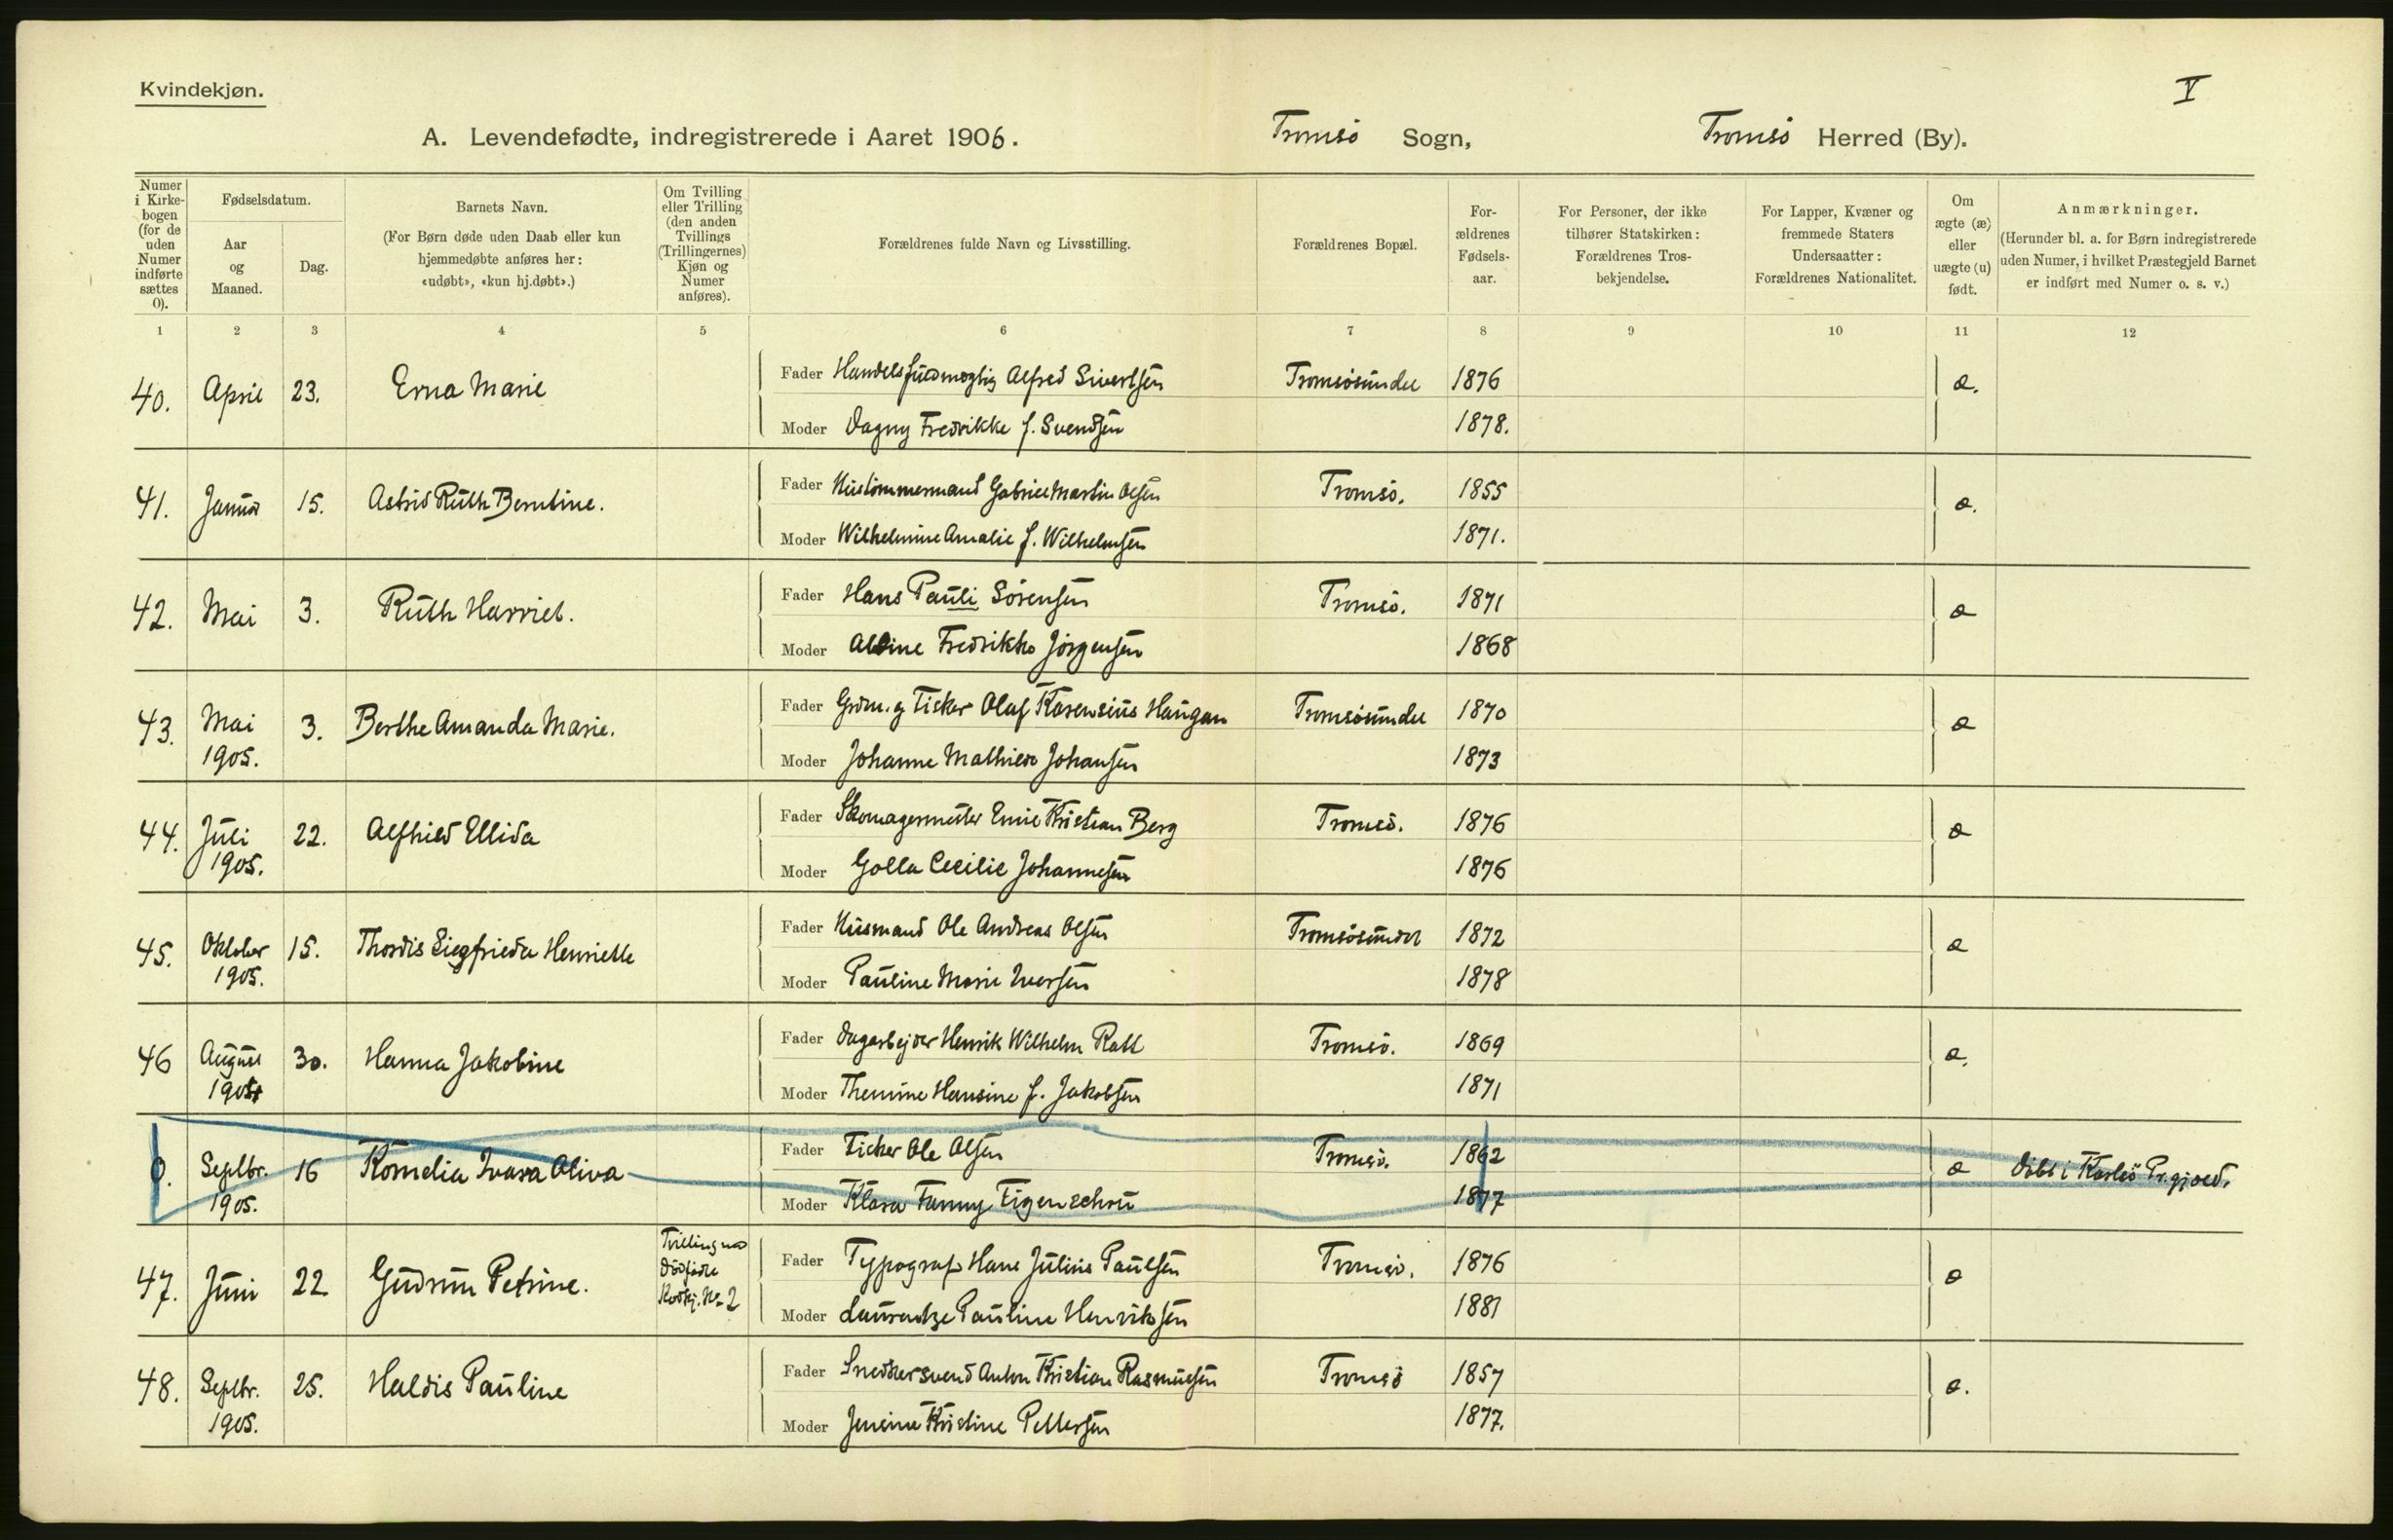 Kvindekjøn.
V
A. Levendefødte, indregistrerede i Aaret 1906. Tromsø Sogn, Tromsø Herred (By).
Numer i Kirke-bogen (for de uden Numer indførte sættes 0).
Fødselsdatum.
Aar og Maaned.
Dag.
Barnets Navn.
(For Børn døde uden Daab eller kun hjemmedøbte anføres her: «udøbt», «kun hj.døbt».)
Om Tvilling eller Trilling (den anden Tvillings (Trillingernes) Kjøn og Numer anføres).
Forældrenes fulde Navn og Livsstilling.
Forældrenes Bopæl.
For-ældrenes Fødsels-aar.
For Personer, der ikke tilhører Statskirken: Forældrenes Tros-bekjendelse.
For Lapper, Kvæner og fremmede Staters Undersaatter: Forældrenes Nationalitet.
Om ægte (æ) eller uægte (u) født.
Anmærkninger.
(Herunder bl. a. for Børn indregistrerede uden Numer, i hvilket Præstegjeld Barnet er indført med Numer o. s. v.)
1 2 3 4 5 6 7 8 9 10 11 12
40. April 23. Erna Marie Fader Handelsfuldmægtig Alfred Sivertsen Tromsøsundet 1876 æ.
Moder Dagny Fredrikke f. Svendsen 1878.
41. Januar 15. Astrid Ruth Berntine. Fader Hustømmermand Gabriel Martin Olsen Tromsø. 1855 æ.
Moder Wilhelmine Amalie f. Wilhelmsen 1871.
42. Mai 3. Ruth Harriet. Fader Hans Pauli Sörensen Tromsø. 1871 æ
Moder Fredrikke Jörgensen 1868
43. Mai 1905. 3. Berthe Amanda Marie. Fader Grdm. og Fisker Olaf Karensius Haugan Tromsøsundet 1870 æ
Moder Johanne Mathilde Johansen 1873
44. Juli 1905. 22. Alfhild Ellida Fader Skomagermester Emil Kristian Berg Tromsø. 1876 æ
Moder Golla Cecilie Johannesen 1876
45. Oktober 1905. 15. Thordis Siegfrieda Henriette Fader Husmand Ole Andreas Olsen Tromsøsundet 1872 æ
Moder Pauline Marie Iversen 1878
46 August 1905 30. Hanna Jakobine Fader Dagarbejder Henrik Wilhelm Tromsø. 1869 æ.
Moder Hansine f. Jakobsen 1871
0. Septbr. 1905. 16 Kornelia Ivara Oliva Fader Fisker Ole Olsen Tromsø. 1862 æ Döbt i Karlsö Pr.gjæld.
Moder Klara Fanny Figenschou 1877
47. Juni 22 Gudrun Petrine. Tvilling med dödfödt No 2 Fader Typograf Hans Julius Paulsen Tromsø. 1876 æ
Moder Laurentze Pauline Henriksen 1881
48. Septbr. 1905. 25. Haldis Pauline Fader Snedkersvend Anton Kristian Rasmusen Tromsø 1857 æ.
Moder Jensine Kristine Pettersen 1877.